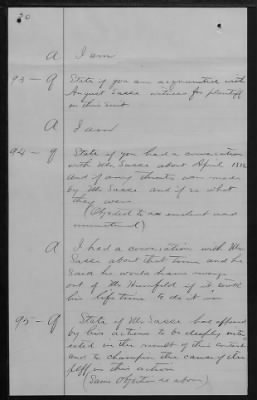 20
A I am
93 - Q State if you are acquainted with
August Sasse witness for plaintiff
in this suit
A I am
94 - Q State if you had a conversation
with Mr Sasse about April
and if any threats was made
by Mr Sasse and if so what
they were
(Objected to as and
immaterial)
A I had a conversation with Mr
Sasse about that time and he
said he would have revenge
out of Mr if it took
his life time to do it in
95 - Q State if Mr Sasse has
by his actions to be deeply inter
ested in the result of this
and to champion the cause of the
plff in this action
(Same Objection as above)